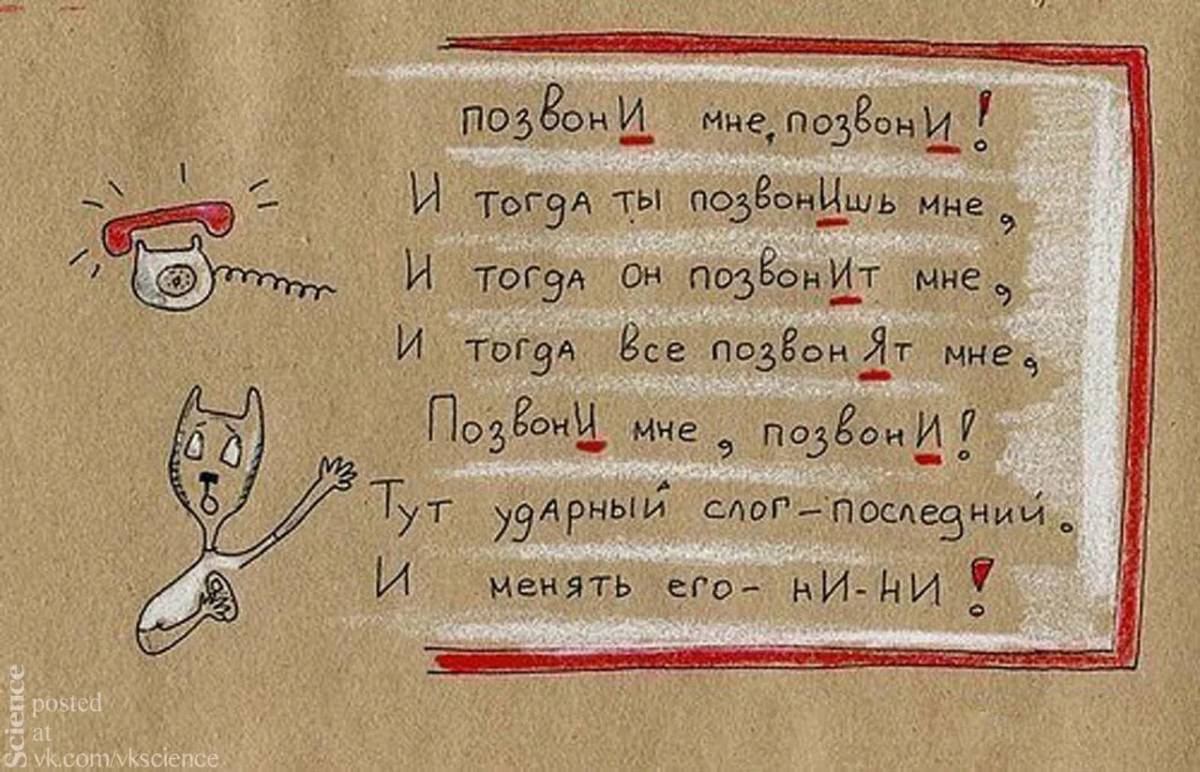 позвонИ мне, позвонИ!
И тогдА ты позвонИшь мне,
И тогдА он позвонИт мне,
И тогдА все позвонЯт мне,
ПозвонИ мне, позвонИ!
Тут удАрный слог-последний.
И менять его- нИ-нИ!
Science
posted
at
vk.com/vkscience